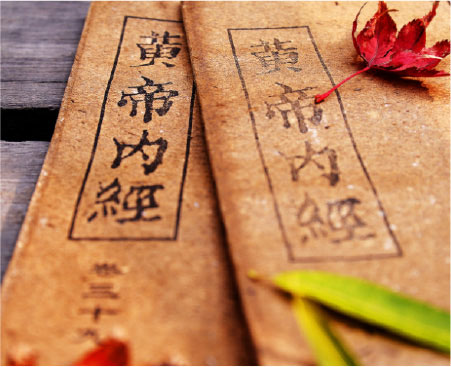 黄帝内經
卷三十
黄帝内經